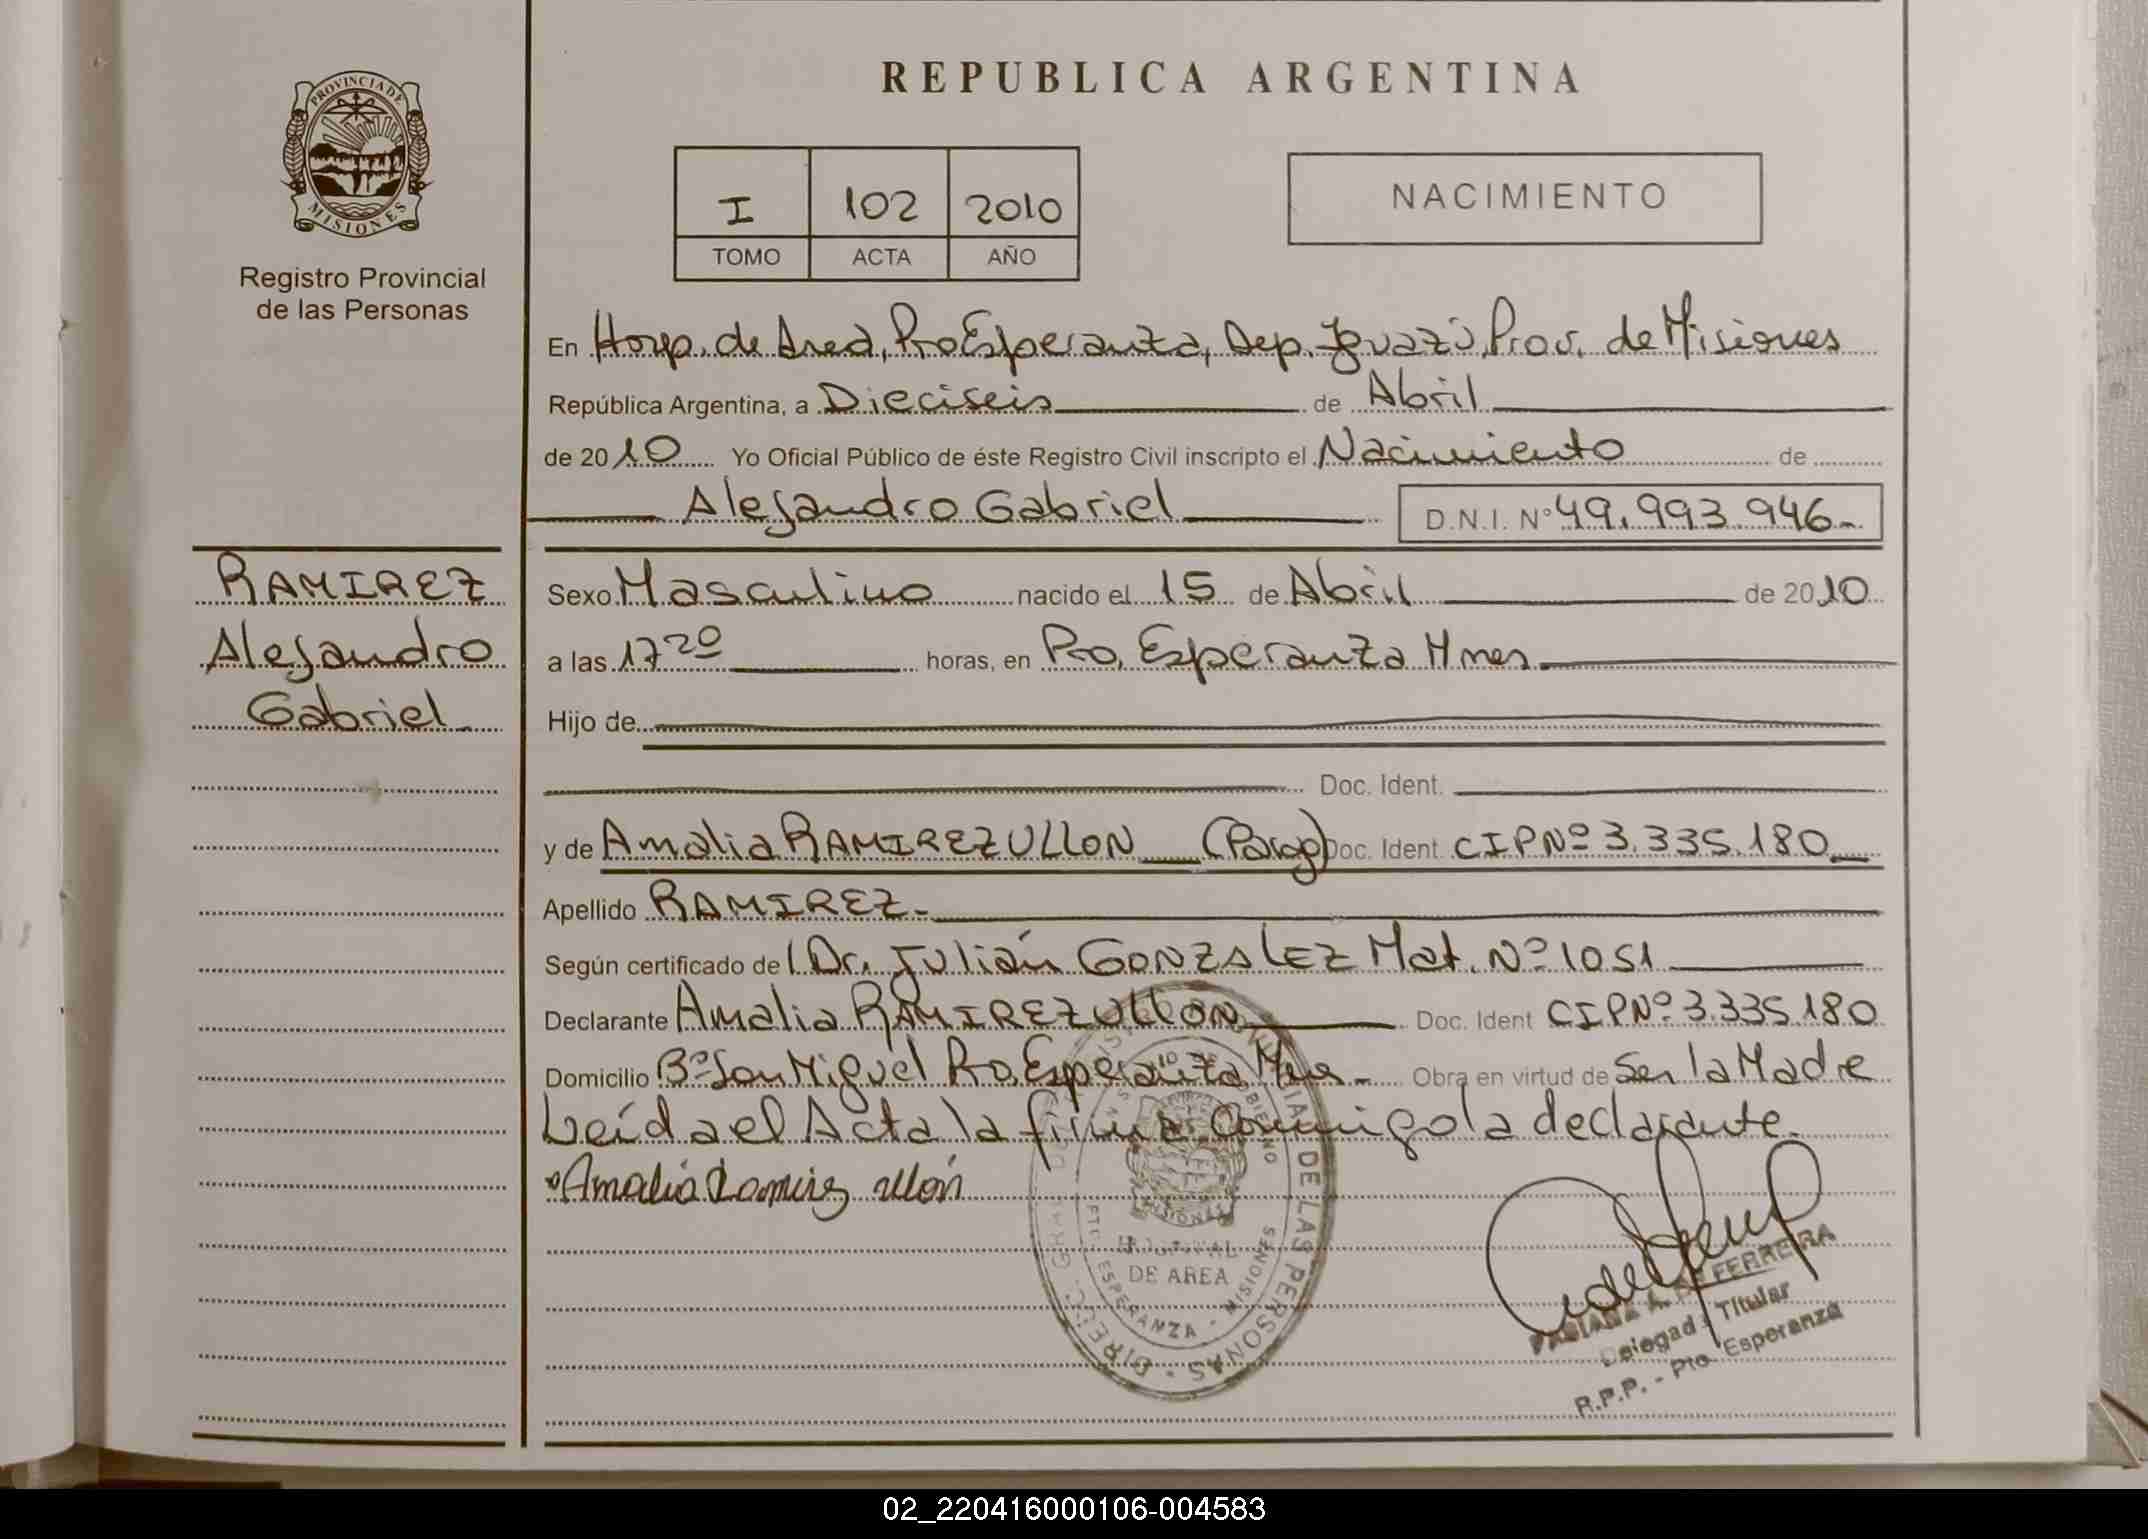 PROVINCIA DE
MISIONES
Registro Provincial
de las Personas
REPUBLICA ARGENTINA
I 102 2010
TOMO ACTA AÑO
NACIMIENTO
En Hosp. de Area, Pto Esperanza, Dep. Iguazú, Prov. de Misiones
República Argentina, a Dieciseis de Abril
de 2010 Yo Oficial Público de éste Registro Civil inscripto el Nacimiento de
Alejandro Gabriel D.N.I. N° 49.993.946-
RAMIREZ
Alejandro
Gabriel
Sexo Masculino nacido el 15 de Abril de 2010
a las 17 20 horas, en Pto. Esperanza Mnes.
Hijo de
Doc. Ident.
y de Amalia RAMIREZ ULLON (Parag) Doc. Ident. CIPNº 3.335.180
Apellido RAMIREZ-
Según certificado de l Dr. Julián GONZALEZ Mat. Nº 1051
Declarante Amalia RAMIREZ ULLON Doc. Ident CIPNº 3.335.180
Domicilio Bº San Miguel Pto. Esperanza Mnes - Obra en virtud de Ser la Madre
Leída el Acta la firma conmigo la declarante.
Amalia Ramirez ullón
HOSPITAL
DE AREA
PTO. ESPERANZA - MISIONES
DE LAS PERSONAS
FABIANA A. FERREIRA
Delegada Titular
R.P.P. - Pto Esperanza
02_220416000106-004583